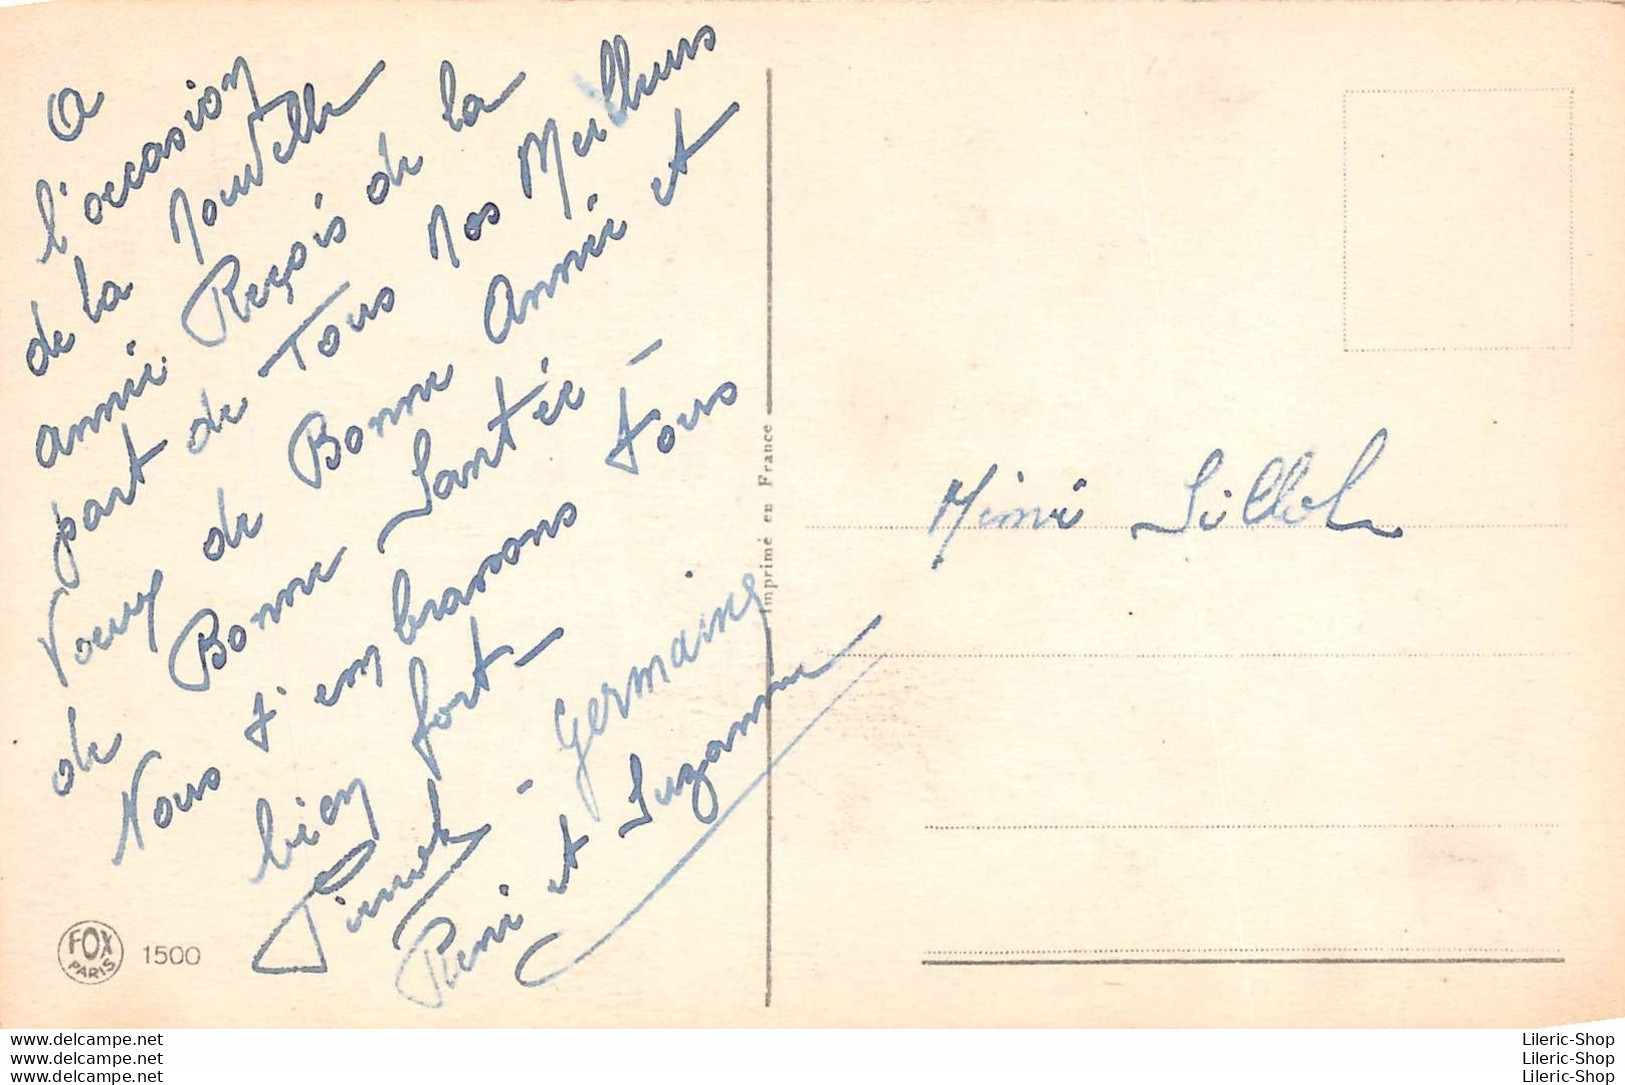 A
l'occasion
de la Nouvelle
année Reçois de la
part de Tous nos Meilleurs
Voeux de Bonne Année et
de Bonne Santée -
Nous t'embrassons Tous
bien fort -
Germaine
René et Suzanne
FOX
PARIS
1500
Imprimé en France
Mimi
www.delcampe.net
www.delcampe.net
www.delcampe.net
Lileric-Shop
Lileric-Shop
Lileric-Shop